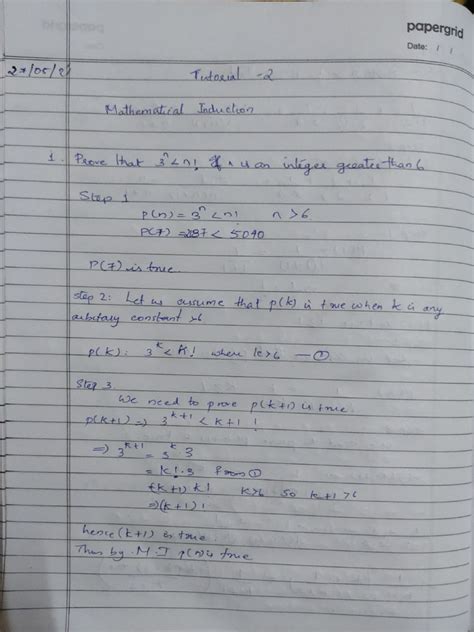 papergrid
Date: / /
27/05/21
Tutorial - 2
Mathematical Induction
1. Prove that 3ⁿ < n! if n is an integer greater than 6
Step 1
p(n) = 3ⁿ < n! n > 6
P(7) = 2187 < 5040
P(7) is true.
Step 2: Let us assume that p(k) is true when k is any
arbitary constant >6
p(k): 3ᵏ < k! where k>6 — ①
Step 3
We need to prove p(k+1) is true
p(k+1) => 3ᵏ⁺¹ < k+1 !
=> 3ᵏ⁺¹ = 3ᵏ 3
= k! · 3 from ①
(k+1) k! k>6 so k+1 >6
=> (k+1)!
hence (k+1) is true.
Thus by M.I p(n) is true